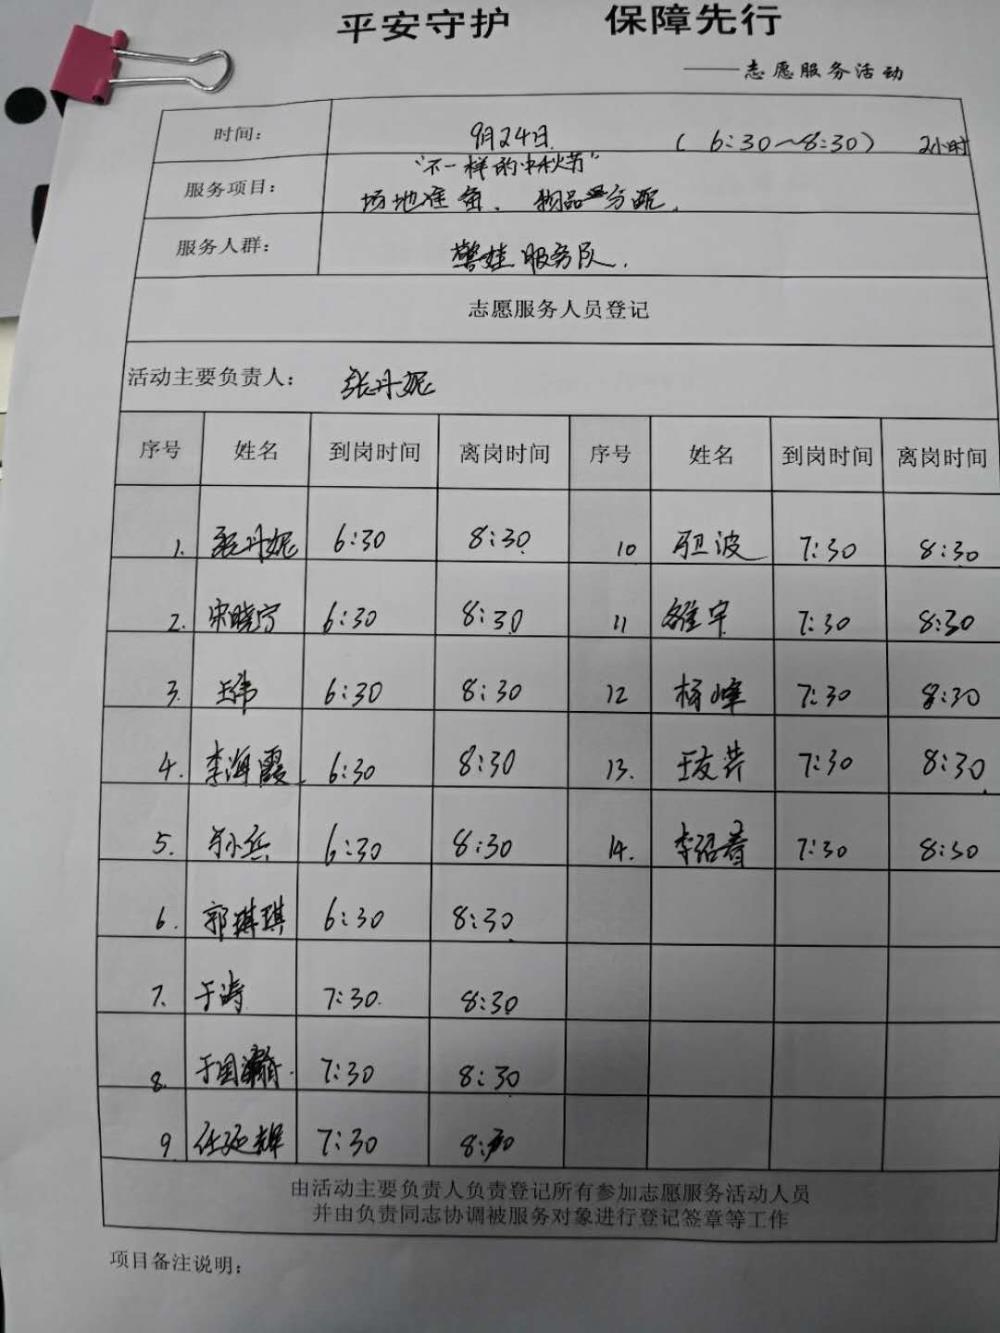 平安守护 保障先行
——志愿服务活动
时间： 9月24日 （6:30～8:30） 2小时
"不一样的中秋节"
服务项目： 场地准备、物品分配。
服务人群： 警娃服务队.
志愿服务人员登记
活动主要负责人： 张丹妮
序号 姓名 到岗时间 离岗时间 序号 姓名 到岗时间 离岗时间
1. 张丹妮 6:30 8:30 10 波 7:30 8:30
2. 宋晓宁 6:30 8:30 11 宇 7:30 8:30
3. 王伟 6:30 8:30 12 杨峰 7:30 8:30
4. 李海霞 6:30 8:30 13. 王友芹 7:30 8:30
5. 孙兵 6:30 8:30 14. 李绍春 7:30 8:30
6. 郭琪琪 6:30 8:30
7. 于涛 7:30 8:30
8. 于国 7:30 8:30
9 任延辉 7:30 8:30
由活动主要负责人负责登记所有参加志愿服务活动人员
并由负责同志协调被服务对象进行登记签章等工作
项目备注说明：